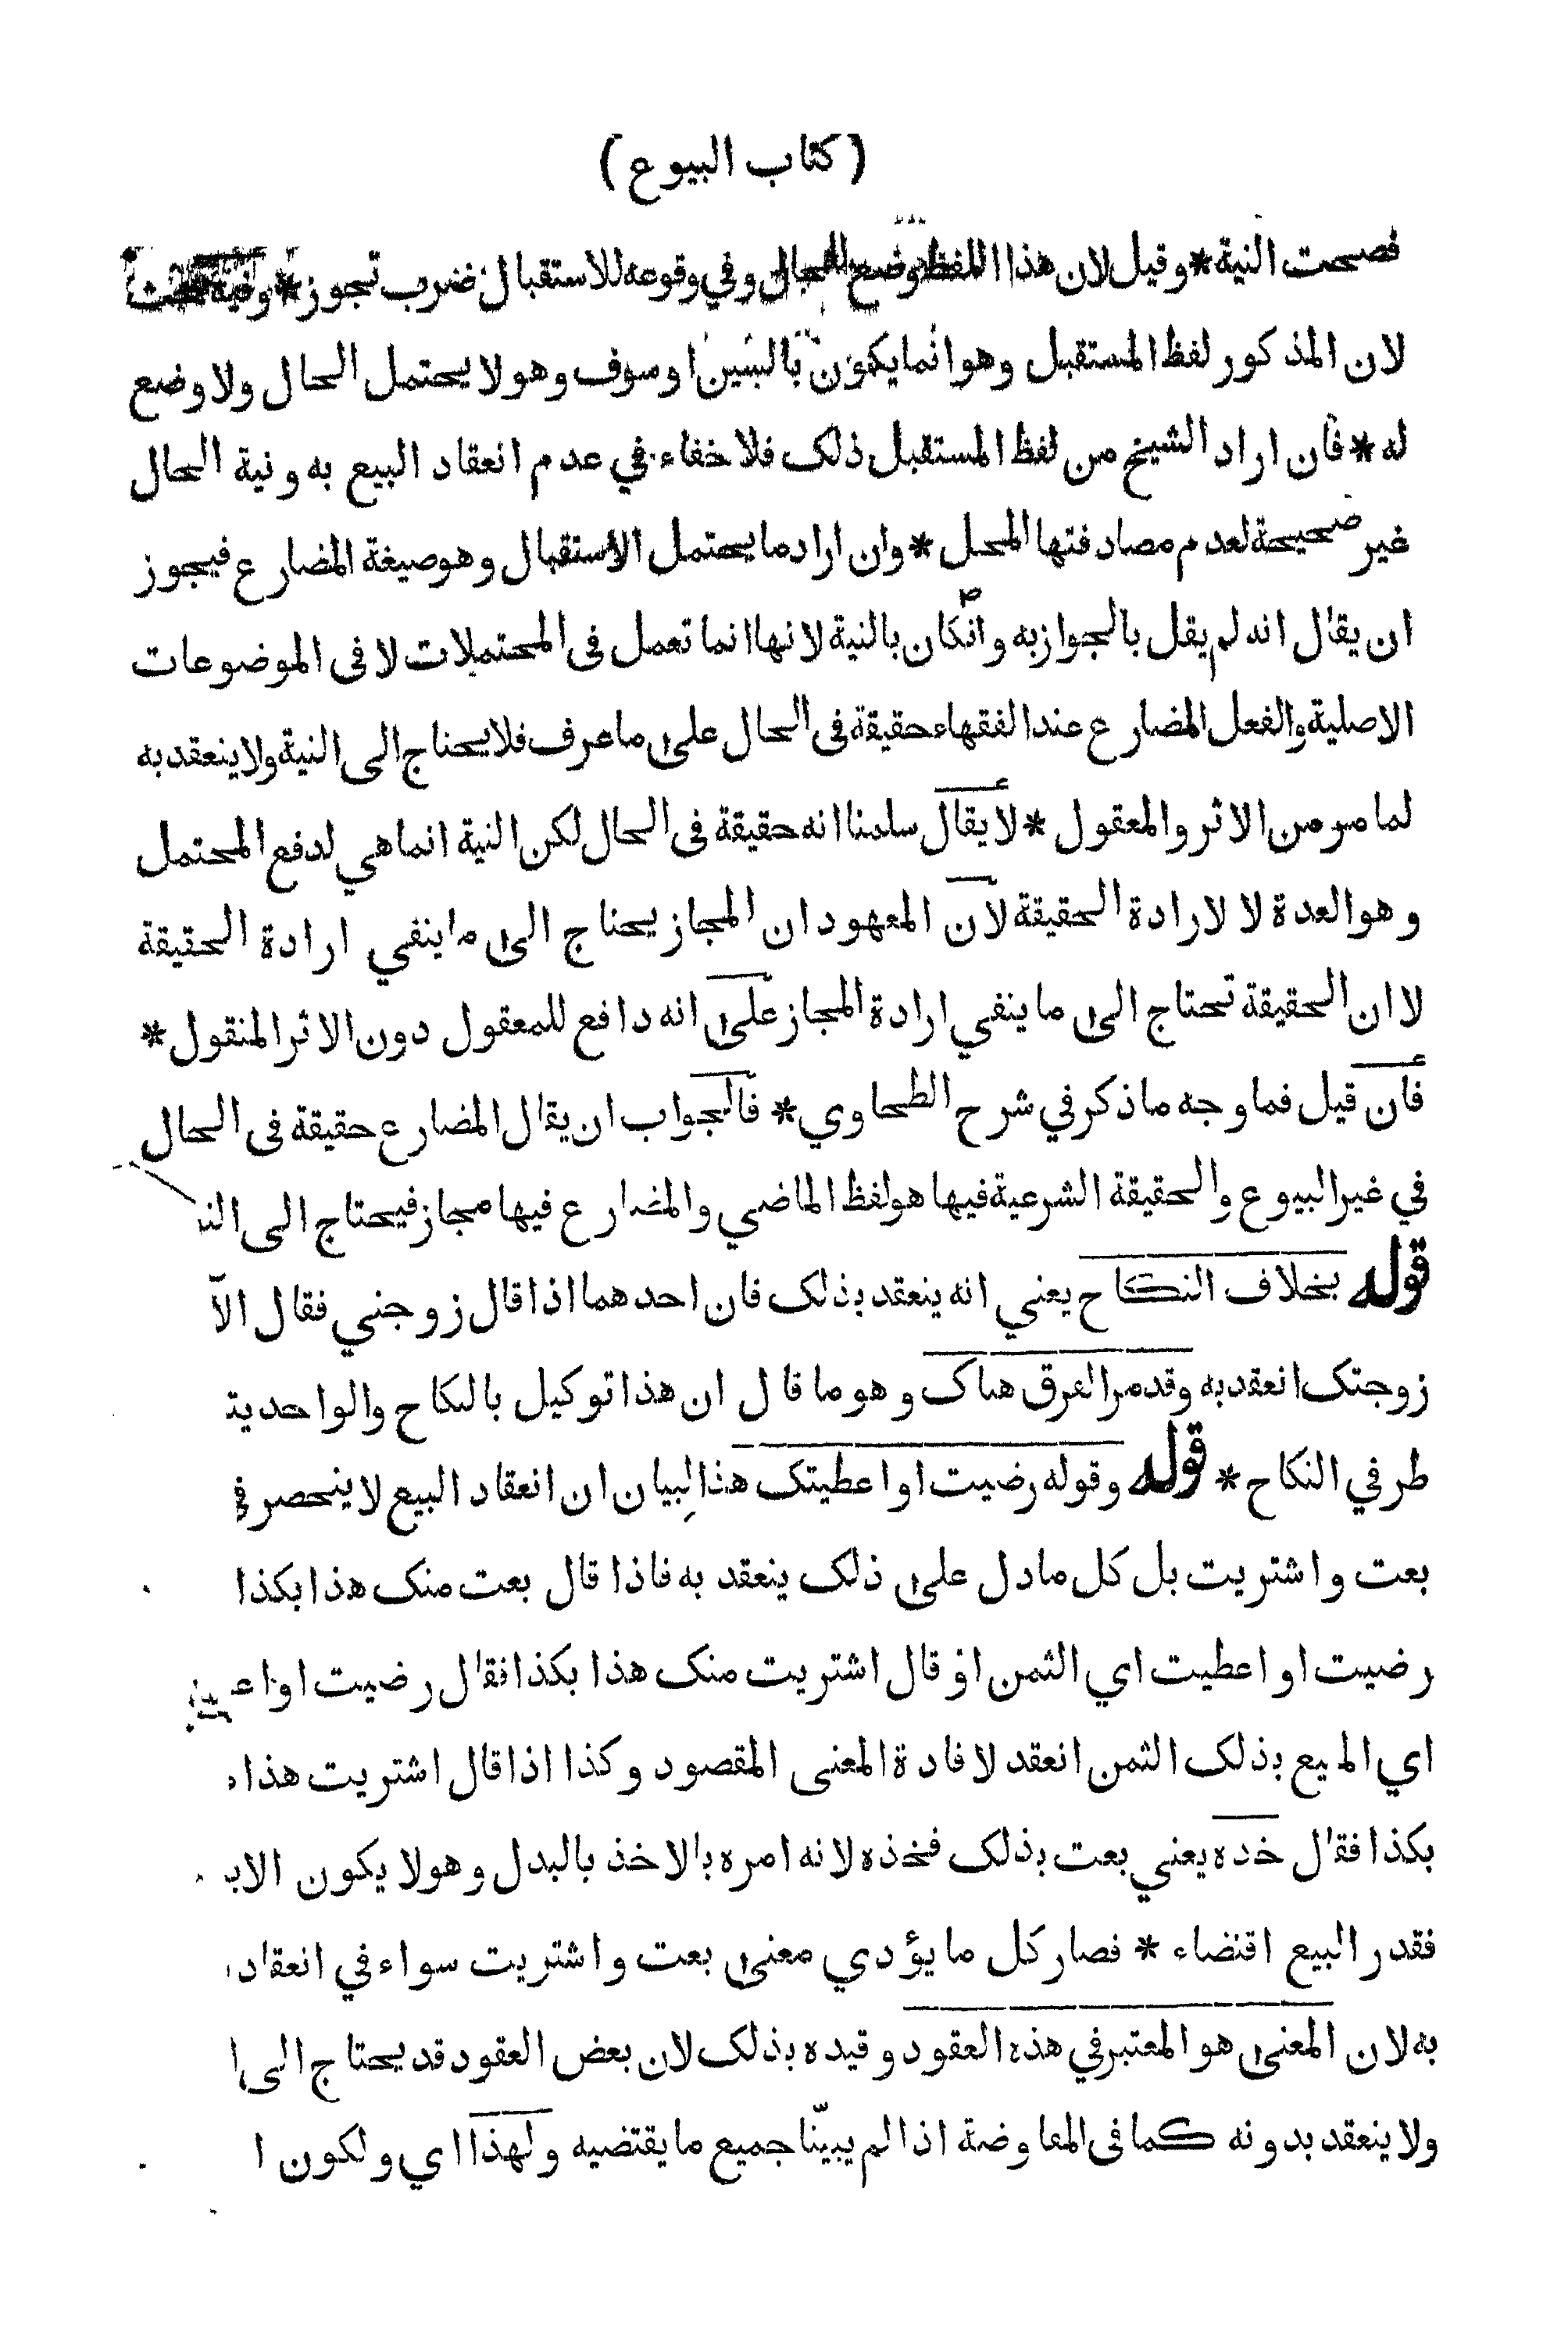 ( كتاب البيوع )
فصحت النية * وقيل لان هذا اللفظ وضع للحال وفي وقوعه للاستقبال ضرب تجوز * وفيه بحث
لان المذكور لفظ المستقبل وهو انما يكون بالسين او سوف وهو لا يحتمل الحال ولا وضع
له * فان اراد الشيخ من لفظ المستقبل ذلك فلا خفاء في عدم انعقاد البيع به ونية الحال
غير صحيحة لعدم مصادفتها المحل * وان اراد ما يحتمل الاستقبال وهو صيغة المضارع فيجوز
ان يقال انه لم يقل بالجواز به وانكان بالنية لانها انما تعمل في المحتملات لا في الموضوعات
الاصلية والفعل المضارع عند الفقهاء حقيقة في الحال على ما عرف فلا يحتاج الى النية ولا ينعقد به
لما مر من الاثر والمعقول * لا يقال سلمنا انه حقيقة في الحال لكن النية انما هي لدفع المحتمل
وهو العدة لا لارادة الحقيقة لان المعهود ان المجاز يحتاج الى ما ينفي ارادة الحقيقة
لا ان الحقيقة تحتاج الى ما ينفي ارادة المجاز على انه دافع للمعقول دون الاثر المنقول *
فان قيل فما وجه ما ذكر في شرح الطحاوي * فالجواب ان يقال المضارع حقيقة في الحال
في غير البيوع والحقيقة الشرعية فيها هو لفظ الماضي والمضارع فيها مجاز فيحتاج الى
قوله بخلاف النكاح يعني انه ينعقد بذلك فان احدهما اذا قال زوجني فقال
زوجتك انعقد به وقد مر الفرق هناك وهو ما قال ان هذا توكيل بالنكاح والواحد
طرفي النكاح * قوله وقوله رضيت او اعطيتك هذا لبيان ان انعقاد البيع لا ينحصر في
بعت واشتريت بل كل ما دل على ذلك ينعقد به فاذا قال بعت منك هذا بكذا
رضيت او اعطيت اي الثمن او قال اشتريت منك هذا بكذا فقال رضيت او
اي المبيع بذلك الثمن انعقد لافادة المعنى المقصود وكذا اذا قال اشتريت هذا
بكذا فقال خذه يعني بعت بذلك فخذه لانه امره بالاخذ بالبدل وهو لا يكون
فقدر البيع اقتضاء * فصار كل ما يؤدي معنى بعت واشتريت سواء في انعقاد
به لان المعنى هو المعتبر في هذه العقود وقيده بذلك لان بعض العقود قد يحتاج الى
ولا ينعقد بدونه كما في المفاوضة اذا لم يبينا جميع ما يقتضيه ولهذا اي ولكون